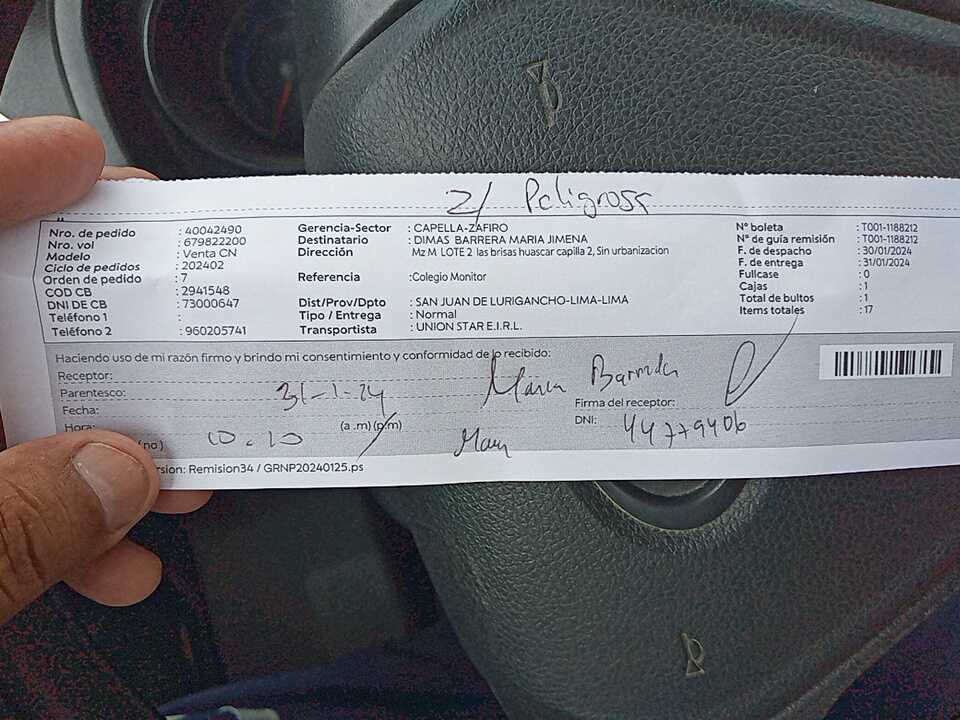 Z/ Peligrosa
Nro. de pedido : 40042490
Nro. vol : 679822200
Modelo : Venta CN
Ciclo de pedidos : 202402
Orden de pedido : 7
COD CB : 2941548
DNI DE CB : 73000647
Teléfono 1 :
Teléfono 2 : 960205741
Gerencia-Sector : CAPELLA-ZAFIRO
Destinatario : DIMAS BARRERA MARIA JIMENA
Dirección Mz M LOTE 2 las brisas huascar capilla 2, Sin urbanizacion
Referencia :Colegio Monitor
Dist/Prov/Dpto : SAN JUAN DE LURIGANCHO-LIMA-LIMA
Tipo / Entrega : Normal
Transportista : UNION STAR E.I.R.L.
N° boleta : T001-1188212
N° de guía remisión : T001-1188212
F. de despacho : 30/01/2024
F. de entrega : 31/01/2024
Fullcase : 0
Cajas : 1
Total de bultos : 1
Items totales : 17
Haciendo uso de mi razón firmo y brindo mi consentimiento y conformidad de lo recibido:
Receptor: Maria
Parentesco:
Fecha: 31-1-24
Hora: 10.10 (a.m)(p.m)
Firma del receptor:
DNI: 44779406
(no)
rsion: Remision34 / GRNP20240125.ps